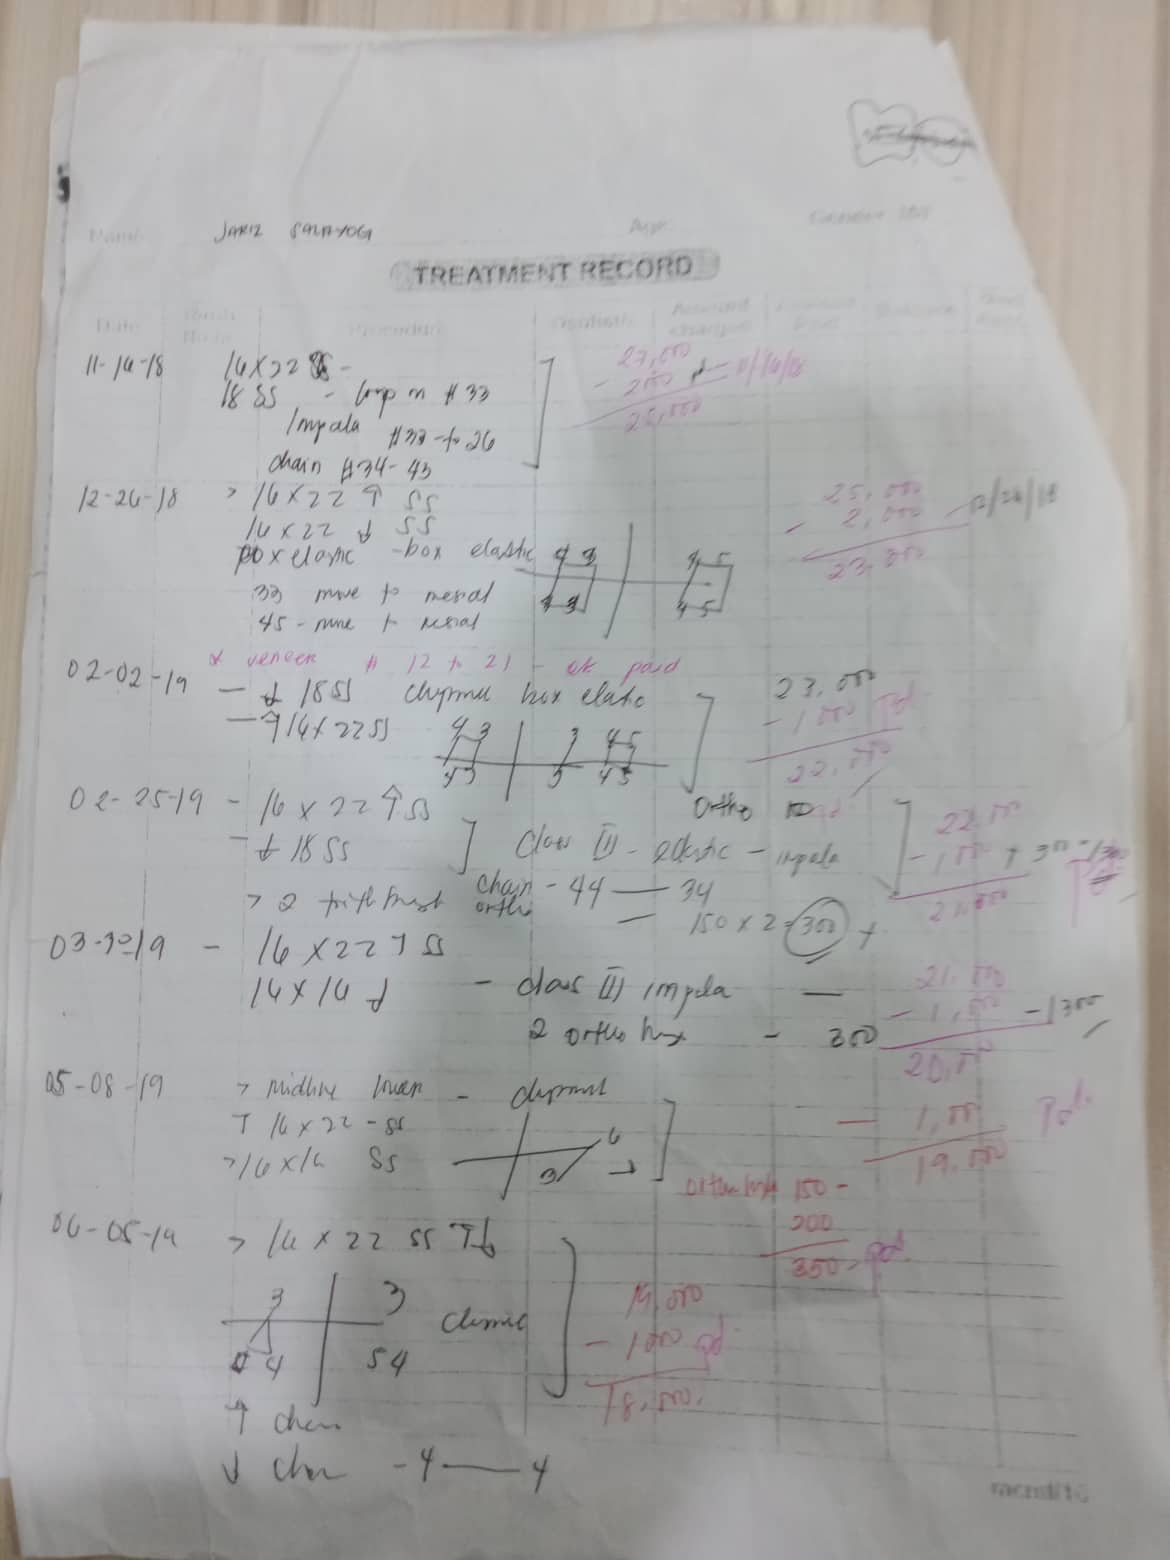 Name JARIZ Age Gender M/F
TREATMENT RECORD
Date Procedure Dentist/s Amount charged Amount Paid Balance Next Appt.
11-16-18 16x22 -
18 SS - loop on #33
Impala #33-to 26
chain #34-43
27,000
- 2000 11/16/18
25,000
12-26-18 > 16x22 ↑ SS
16x22 ↓ SS
box elastic - box elastic
4 3 4 5
4 3 4 5
33 move to mesial
45 - move to mesial
25,000
- 2,000 12/26/18
23,000
x veneer # 12 to 21 - ok paid
02-02-19 - ↓ 18 SS box elastic
- ↑ 16x22 SS
4 3 3 45
43 3 45
23,000
- 1,000 pd
22,000
02-25-19 - 16 x 22 ↑ SS
- ↓ 18 SS
Class III - elastic - impala
Ortho
chain - 44 — 34
> 2 ortho
150 x 2 = 300 +
22,000
- 1,000 + 300 - 1300
21,000 pd
03-30-19 - 16 x 22 ↑ SS
16x16 ↓ - class III impala —
2 ortho - 300
21,000
- 1,000 - 1300
20,000
05-08-19 > midline lower -
↑ 16x22 - SS
> 16x16 SS
6
3
- 1,000 pd.
19,000
ortho 150 -
200
350 - pd.
06-05-19 > 16 x 22 SS ↑↓
3 3
4 54
19,000
- 1000 pd.
18,000.
↑ chain
↓ chain - 4 — 4